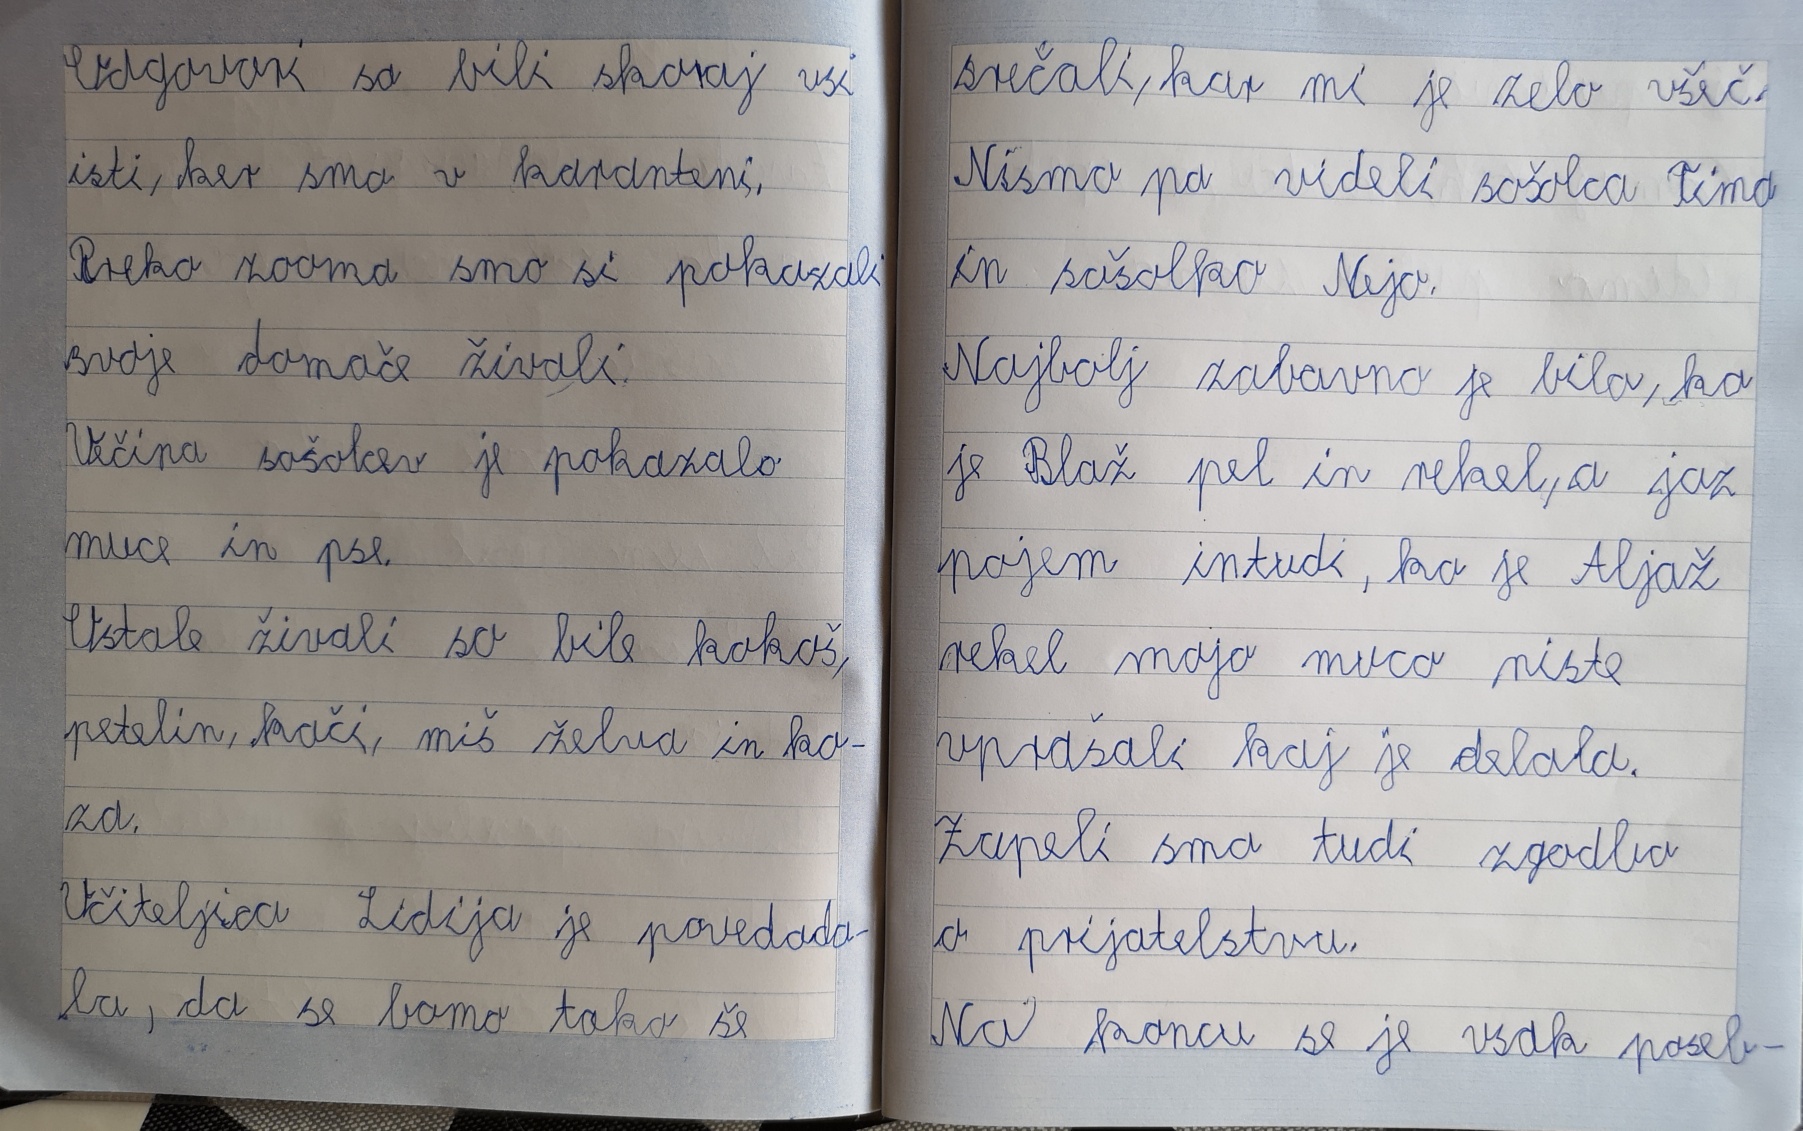 Odgovori so bili skoraj vsi
isti, ker smo v karanteni.
Preko zooma smo si pokazali
svoje domače živali.
Večina sošolcev je pokazalo
muce in pse.
Ostale živali so bile kokoš,
petelin, kači, miš želva in ko-
za.
Učiteljica Lidija je povedada-
la, da se bomo tako še
srečali, kar mi je zelo všeč.
Nismo pa videli sošolca Tima
in sošolko Nejo.
Najbolj zabavno je bilo, ko
je Blaž pel in rekel, a jaz
pojem intudi, ko je Aljaž
rekel mojo muco niste
vprašali kaj je delala.
Zapeli smo tudi zgodbo
o prijatelstvu.
Na koncu se je vsak poseb-